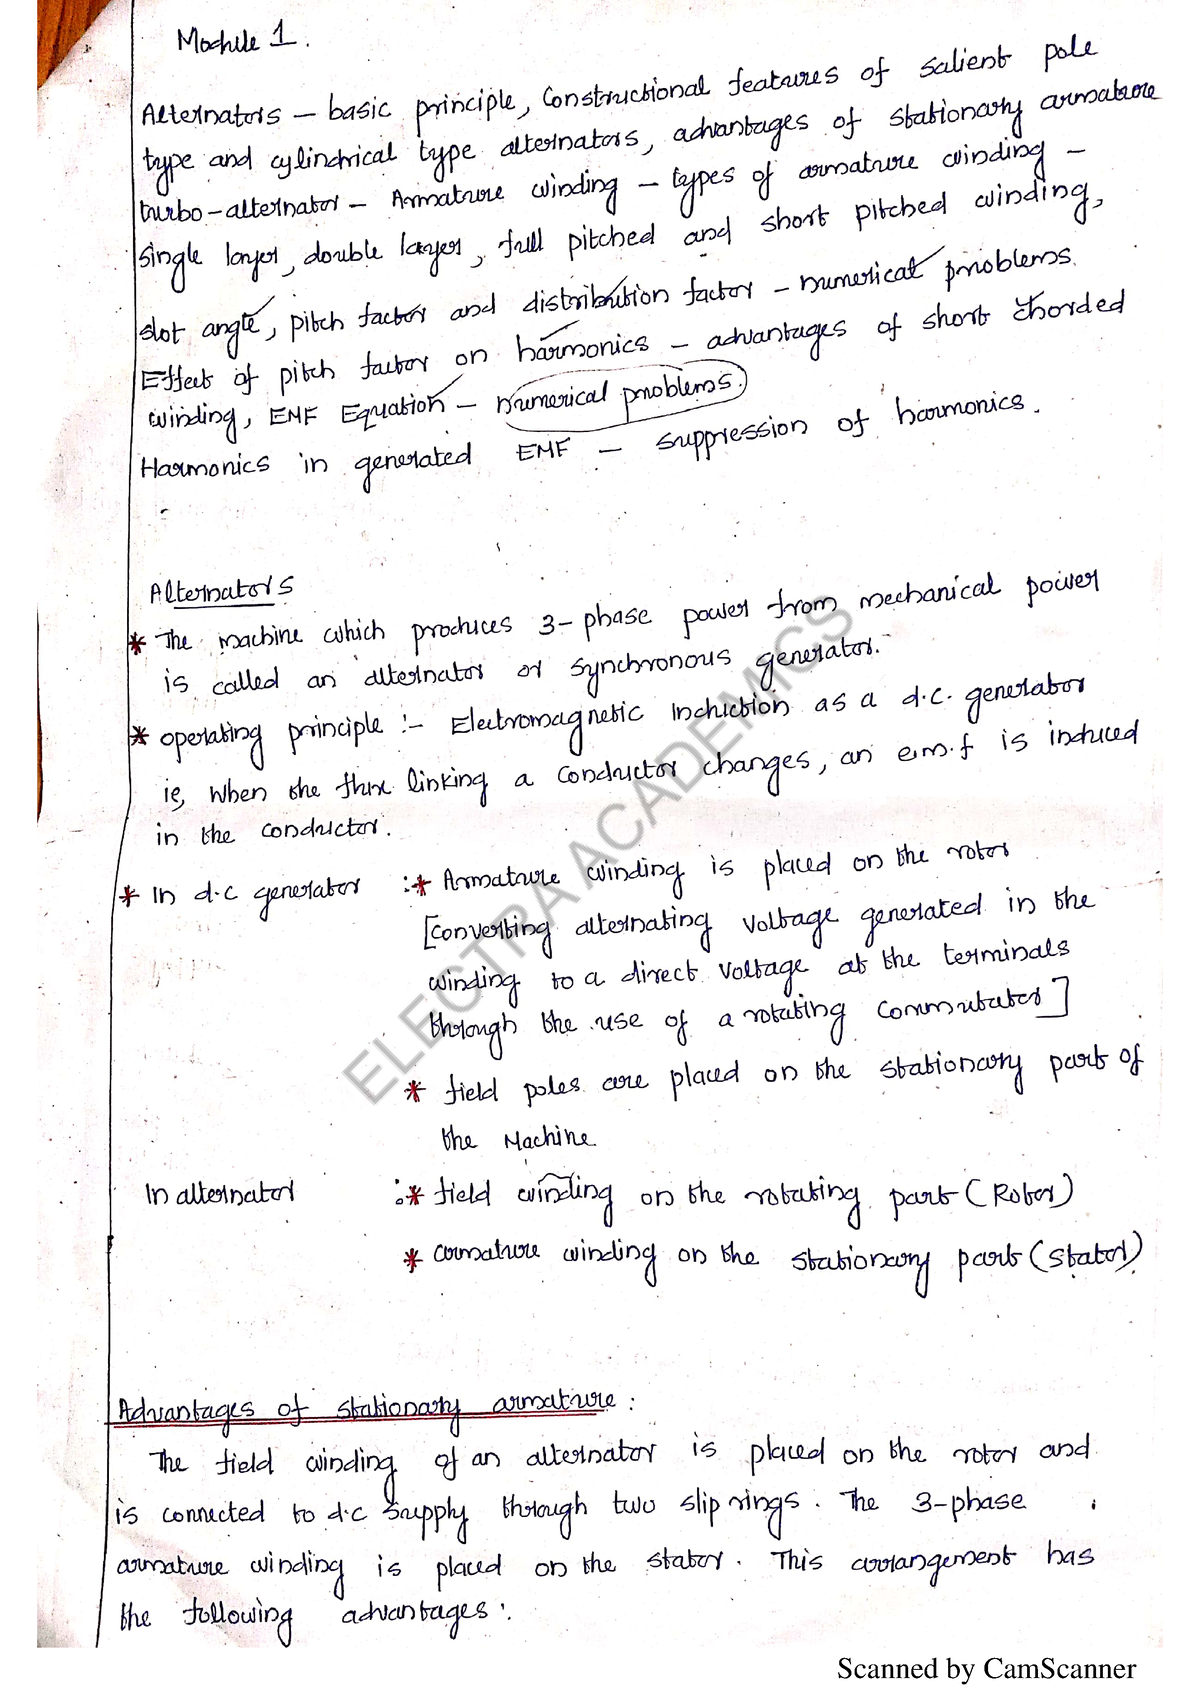 Module 1.
Alternators – basic principle, Constructional features of salient pole
type and cylindrical type alternators, advantages of stationary armature
turbo-alternator – Armature winding – types of armature winding –
single layer, double layer, full pitched and short pitched winding,
slot angle, pitch factor and distribution factor – numerical problems.
Effect of pitch factor on harmonics – advantages of short chorded
winding, EMF Equation – numerical problems.
Harmonics in generated EMF – suppression of harmonics.
Alternators
* The machine which produces 3-phase power from mechanical power
is called an alternator or synchronous generator.
* operating principle :- Electromagnetic Induction as a d.c. generator
ie, when the flux linking a conductor changes, an e.m.f is induced
in the conductor.
* In d.c generator :* Armature winding is placed on the rotor
[converting alternating voltage generated in the
winding to a direct voltage at the terminals
through the use of a rotating commutator]
* field poles are placed on the stationary part of
the Machine.
In alternator :* field winding on the rotating part (Rotor)
* armature winding on the stationary part (stator)
Advantages of stationary armature :
The field winding of an alternator is placed on the rotor and
is connected to d.c supply through two slip rings. The 3-phase
armature winding is placed on the stator. This arrangement has
the following advantages :
ELECTRA ACADEMICS
Scanned by CamScanner